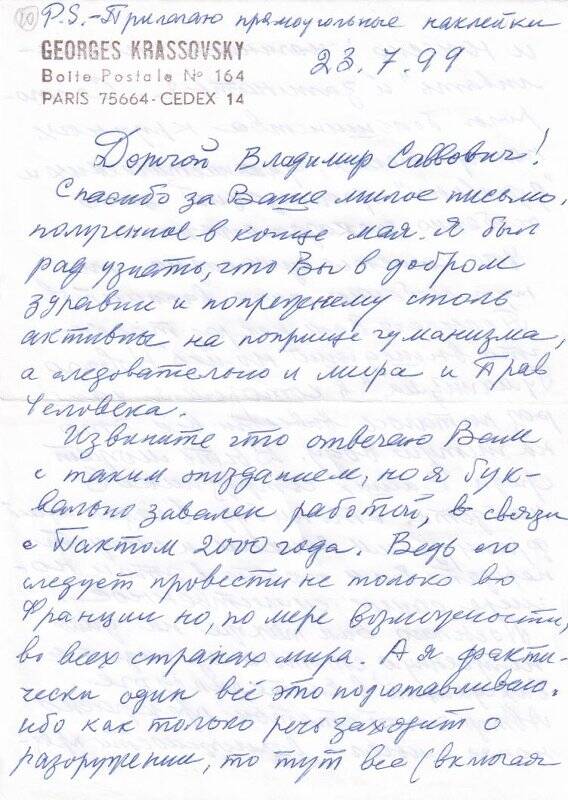 10
P.S. - Прилагаю прямоугольные наклейки
GEORGES KRASSOVSKY
Boîte Postale Nº 164
PARIS 75664 - CEDEX 14
23.7.99
Дорогой Владимир Саввович!
Спасибо за Ваше милое письмо,
полученное в конце мая. Я был
рад узнать, что Вы в добром
здравии и попрежнему столь
активны на поприще гуманизма,
а следовательно и мира и Прав
Человека.
Извините что отвечаю Вам
с таким опозданием, но я бук-
вально завален работой, в связи
с Пактом 2000 года. Ведь его
следует провести не только во
Франции но, по мере возможности,
во всех странах мира. А я факти-
чески один всё это подготавливаю.
ибо как только речь заходит о
разоружении, то тут все (включая